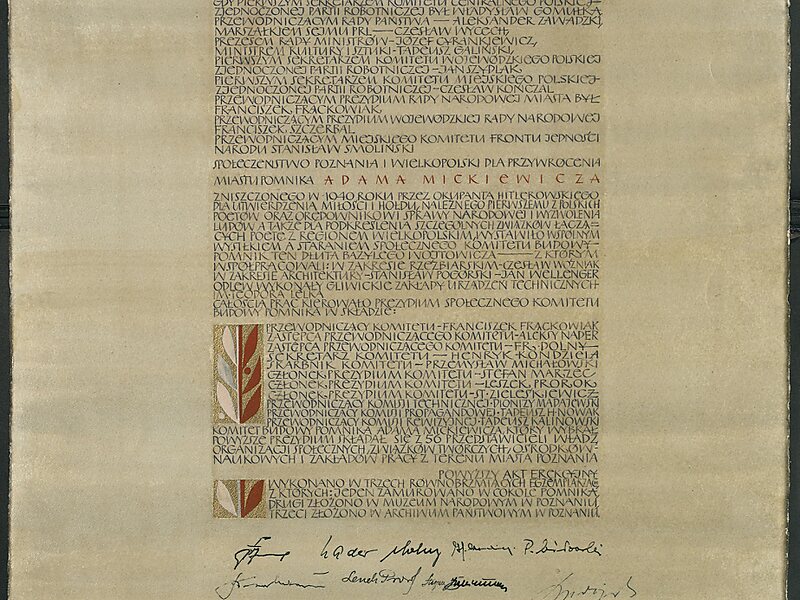 GDY PIERWSZYM SEKRETARZEM KOMITETU CENTRALNEGO POLSKIEJ
ZJEDNOCZONEJ PARTII ROBOTNICZEJ BYŁ WŁADYSŁAW GOMUŁKA,
PRZEWODNICZĄCYM RADY PAŃSTWA — ALEKSANDER ZAWADZKI,
MARSZAŁKIEM SEJMU PRL — CZESŁAW WYCECH,
PREZESEM RADY MINISTRÓW – JÓZEF CYRANKIEWICZ,
MINISTREM KULTURY I SZTUKI – TADEUSZ GALIŃSKI,
PIERWSZYM SEKRETARZEM KOMITETU WOJEWÓDZKIEGO POLSKIEJ
ZJEDNOCZONEJ PARTII ROBOTNICZEJ – JAN SZYDLAK,
PIERWSZYM SEKRETARZEM KOMITETU MIEJSKIEGO POLSKIEJ –
ZJEDNOCZONEJ PARTII ROBOTNICZEJ – CZESŁAW KOŃCZAL
PRZEWODNICZĄCYM PREZYDIUM RADY NARODOWEJ MIASTA BYŁ
FRANCISZEK FRĄCKOWIAK,
PRZEWODNICZĄCYM PREZYDIUM WOJEWÓDZKIEJ RADY NARODOWEJ
FRANCISZEK SZCZERBAL
PRZEWODNICZĄCYM MIEJSKIEGO KOMITETU FRONTU JEDNOŚCI
NARODU STANISŁAW SMOLIŃSKI
SPOŁECZEŃSTWO POZNANIA I WIELKOPOLSKI DLA PRZYWRÓCENIA
MIASTU POMNIKA ADAMA MICKIEWICZA
ZNISZCZONEGO W 1940 ROKU PRZEZ OKUPANTA HITLEROWSKIEGO
DLA UTWIERDZENIA MIŁOŚCI I HOŁDU, NALEŻNEGO PIERWSZEMU Z POLSKICH
POETÓW ORAZ ORĘDOWNIKOWI SPRAWY NARODOWEJ I WYZWOLENIA
LUDÓW A TAKŻE DLA PODKREŚLENIA SZCZEGÓLNYCH ZWIĄZKÓW ŁĄCZĄ=
CYCH POETĘ Z REGIONEM WIELKOPOLSKIM, WYSTAWIŁO WSPÓLNYM
WYSIŁKIEM A STARANIEM SPOŁECZNEGO KOMITETU BUDOWY –
POMNIK TEN DŁUTA BAZYLEGO WOJTOWICZA — Z KTÓRYM
WSPÓŁPRACOWALI: W ZAKRESIE RZEŹBIARSKIM – CZESŁAW WOŹNIAK
W ZAKRESIE ARCHITEKTURY – STANISŁAW POGÓRSKI – JAN WELLENGER
ODLEW WYKONAŁY GLIWICKIE ZAKŁADY URZĄDZEŃ TECHNICZNYCH
IM. TEODORA LELKA
CAŁOŚCIĄ PRAC KIEROWAŁO PREZYDIUM SPOŁECZNEGO KOMITETU
BUDOWY POMNIKA W SKŁADZIE:
PRZEWODNICZĄCY KOMITETU – FRANCISZEK FRĄCKOWIAK
ZASTĘPCA PRZEWODNICZĄCEGO KOMITETU – ALEKSY NADER
ZASTĘPCA PRZEWODNICZĄCEGO KOMITETU – FR. DOLNY –
SEKRETARZ KOMITETU — HENRYK KONDZIELA
SKARBNIK KOMITETU – PRZEMYSŁAW MICHAŁOWSKI
CZŁONEK PREZYDIUM KOMITETU – STEFAN MARZEC
CZŁONEK PREZYDIUM KOMITETU – LESZEK PROROK,
CZŁONEK PREZYDIUM KOMITETU – ST. ZIELESKIEWICZ
PRZEWODNICZĄCY KOMISJI TECHNICZNEJ – DIONIZY MADAJEWSKI
PRZEWODNICZĄCY KOMISJI PROPAGANDOWEJ – TADEUSZ H. NOWAK
PRZEWODNICZĄCY KOMISJI REWIZYJNEJ – TADEUSZ KALINOWSKI
KOMITET BUDOWY POMNIKA, ADAMA MICKIEWICZA KTÓRY WYBRAŁ
POWYŻSZE PREZYDIUM SKŁADAŁ SIĘ Z 56 PRZEDSTAWICIELI WŁADZ,
ORGANIZACJI SPOŁECZNYCH, ZWIĄZKÓW TWÓRCZYCH, OŚRODKÓW
NAUKOWYCH I ZAKŁADÓW PRACY Z TERENU MIASTA POZNANIA
POWYŻSZY AKT EREKCYJNY
WYKONANO W TRZECH RÓWNOBRZMIĄCYCH EGZEMPLARZACH
Z KTÓRYCH: JEDEN ZAMUROWANO W COKOLE POMNIKA,
DRUGI ZŁOŻONO W MUZEUM NARODOWYM W POZNANIU,
TRZECI ZŁOŻONO W ARCHIWUM PAŃSTWOWYM W POZNANIU